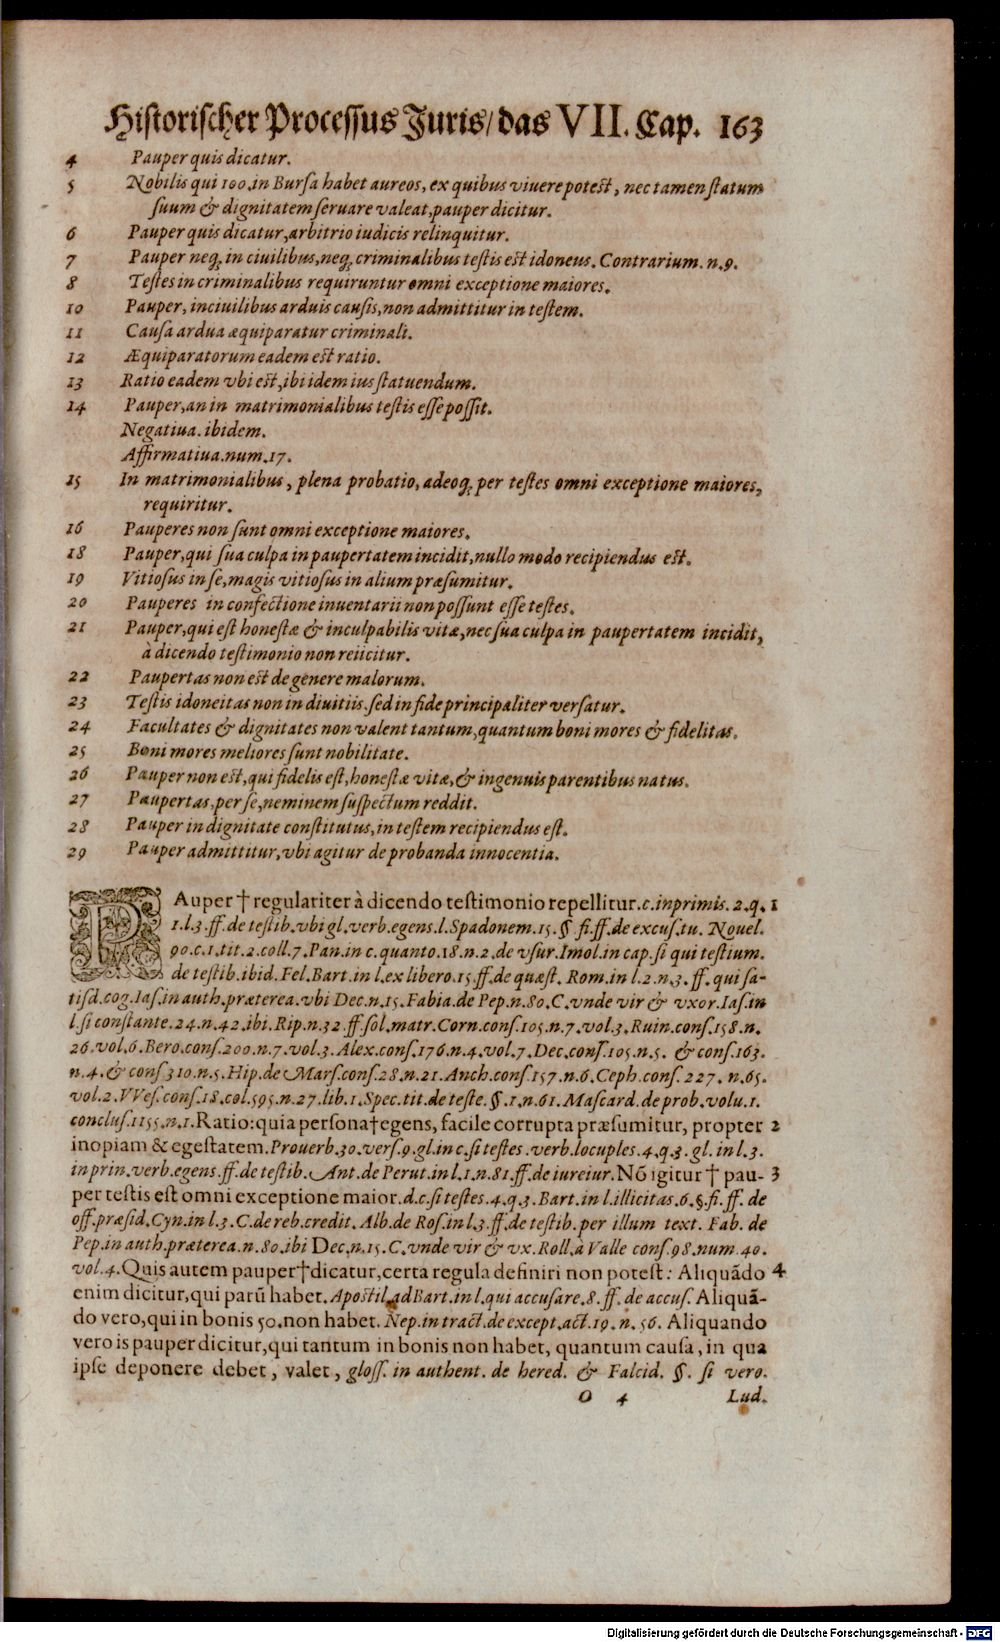 Historischer Processus Juris/ das VII. Cap. 163
4 Pauper quis dicatur.
5 Nobilis qui 100. in Bursa habet aureos, ex quibus viuere potest, nec tamen statum
suum & dignitatem seruare valeat, pauper dicitur.
6 Pauper quis dicatur, arbitrio iudicis relinquitur.
7 Pauper neq; in ciuilibus, neq; criminalibus testis est idoneus. Contrarium. n. 9.
8 Testes in criminalibus requiruntur omni exceptione maiores.
10 Pauper, inciuilibus arduis causis, non admittitur in testem.
11 Causa ardua æquiparatur criminali.
12 Æquiparatorum eadem est ratio.
13 Ratio eadem vbi est, ibi idem ius statuendum.
14 Pauper, an in matrimonialibus testis esse possit.
Negatiua. ibidem.
Affirmatiua. num. 17.
15 In matrimonialibus, plena probatio, adeoq; per testes omni exceptione maiores,
requiritur.
16 Pauperes non sunt omni exceptione maiores.
18 Pauper, qui sua culpa in paupertatem incidit, nullo modo recipiendus est.
19 Vitiosus in se, magis vitiosus in alium præsumitur.
20 Pauperes in confectione inuentarii non possunt esse testes.
21 Pauper, qui est honestæ & inculpabilis vitæ, nec sua culpa in paupertatem incidit,
à dicendo testimonio non reiicitur.
22 Paupertas non est de genere malorum.
23 Testis idoneitas non in diuitiis. sed in fide principaliter versatur.
24 Facultates & dignitates non valent tantum, quantum boni mores & fidelitas.
25 Boni mores meliores sunt nobilitate.
26 Pauper non est, qui fidelis est, honestæ vitæ, & ingenuis parentibus natus.
27 Paupertas, per se, neminem suspectum reddit.
28 Pauper in dignitate constitutus, in testem recipiendus est.
29 Pauper admittitur, vbi agitur de probanda innocentia.
PAuper † regulariter à dicendo testimonio repellitur. c. inprimis. 2. q. 1
1. l. 3. ff. de testib. vbi gl. verb. egens. l. Spadonem. 15. § fi. ff. de excus. tu. Nouel.
90. c. 1. tit. 2. coll. 7. Pan. in c. quanto. 18. n. 2. de vsur. Imol. in cap. si qui testium.
de testib. ibid. Fel. Bart. in l. ex libero. 15. ff. de quæst. Rom. in l. 2. n. 3. ff. qui sa-
tisd. cog. Ias. in auth. præterea. vbi Dec. n. 15. Fabia. de Pep. n. 80. C. vnde vir & vxor. Ias. in
l. si constante. 24. n. 42. ibi. Rip. n. 32. ff. sol. matr. Corn. cons. 105. n. 7. vol. 3. Ruin. cons. 158. n.
26. vol. 6. Bero. cons. 200. n. 7. vol. 3. Alex. cons. 176. n. 4. vol. 7. Dec. cons. 105. n. 5. & cons. 163.
n. 4. & cons 310. n. 5. Hip. de Mars. cons. 28. n. 21. Anch. cons. 157. n. 6. Ceph. cons. 227. n. 65.
vol. 2. VVes. cons. 18. col. 595. n. 27. lib. 1. Spec. tit. de teste. §. 1. n. 61. Mascard. de prob. volu. 1.
conclus. 1155. n. 1. Ratio: quia persona † egens, facile corrupta præsumitur, propter 2
inopiam & egestatem. Prouerb. 30. vers. 9. gl. in c. si testes. verb. locuples. 4. q. 3. gl. in l. 3.
in prin. verb. egens. ff. de testib. Ant. de Perut. in l. 1. n. 81. ff. de iureiur. Nō igitur † pau- 3
per testis est omni exceptione maior. d. c. si testes. 4. q. 3. Bart. in l. illicitas. 6. §. fi. ff. de
off. præsid. Cyn. in l. 3. C. de reb. credit. Alb. de Ros. in l. 3. ff. de testib. per illum text. Fab. de
Pep. in auth. præterea. n. 80. ibi Dec. n. 15. C. vnde vir & vx. Roll. à Valle cons. 98. num. 40.
vol. 4. Quis autem pauper † dicatur, certa regula definiri non potest: Aliquādo 4
enim dicitur, qui parū habet. Apostil. ad Bart. in l. qui accusare. 8. ff. de accus. Aliquā-
do vero, qui in bonis 50. non habet. Nep. in tract. de except. act. 19. n. 56. Aliquando
vero is pauper dicitur, qui tantum in bonis non habet, quantum causa, in qua
ipse deponere debet, valet, gloss. in authent. de hered. & Falcid. §. si vero.
O 4 Lud.
Digitalisierung gefördert durch die Deutsche Forschungsgemeinschaft - DFG